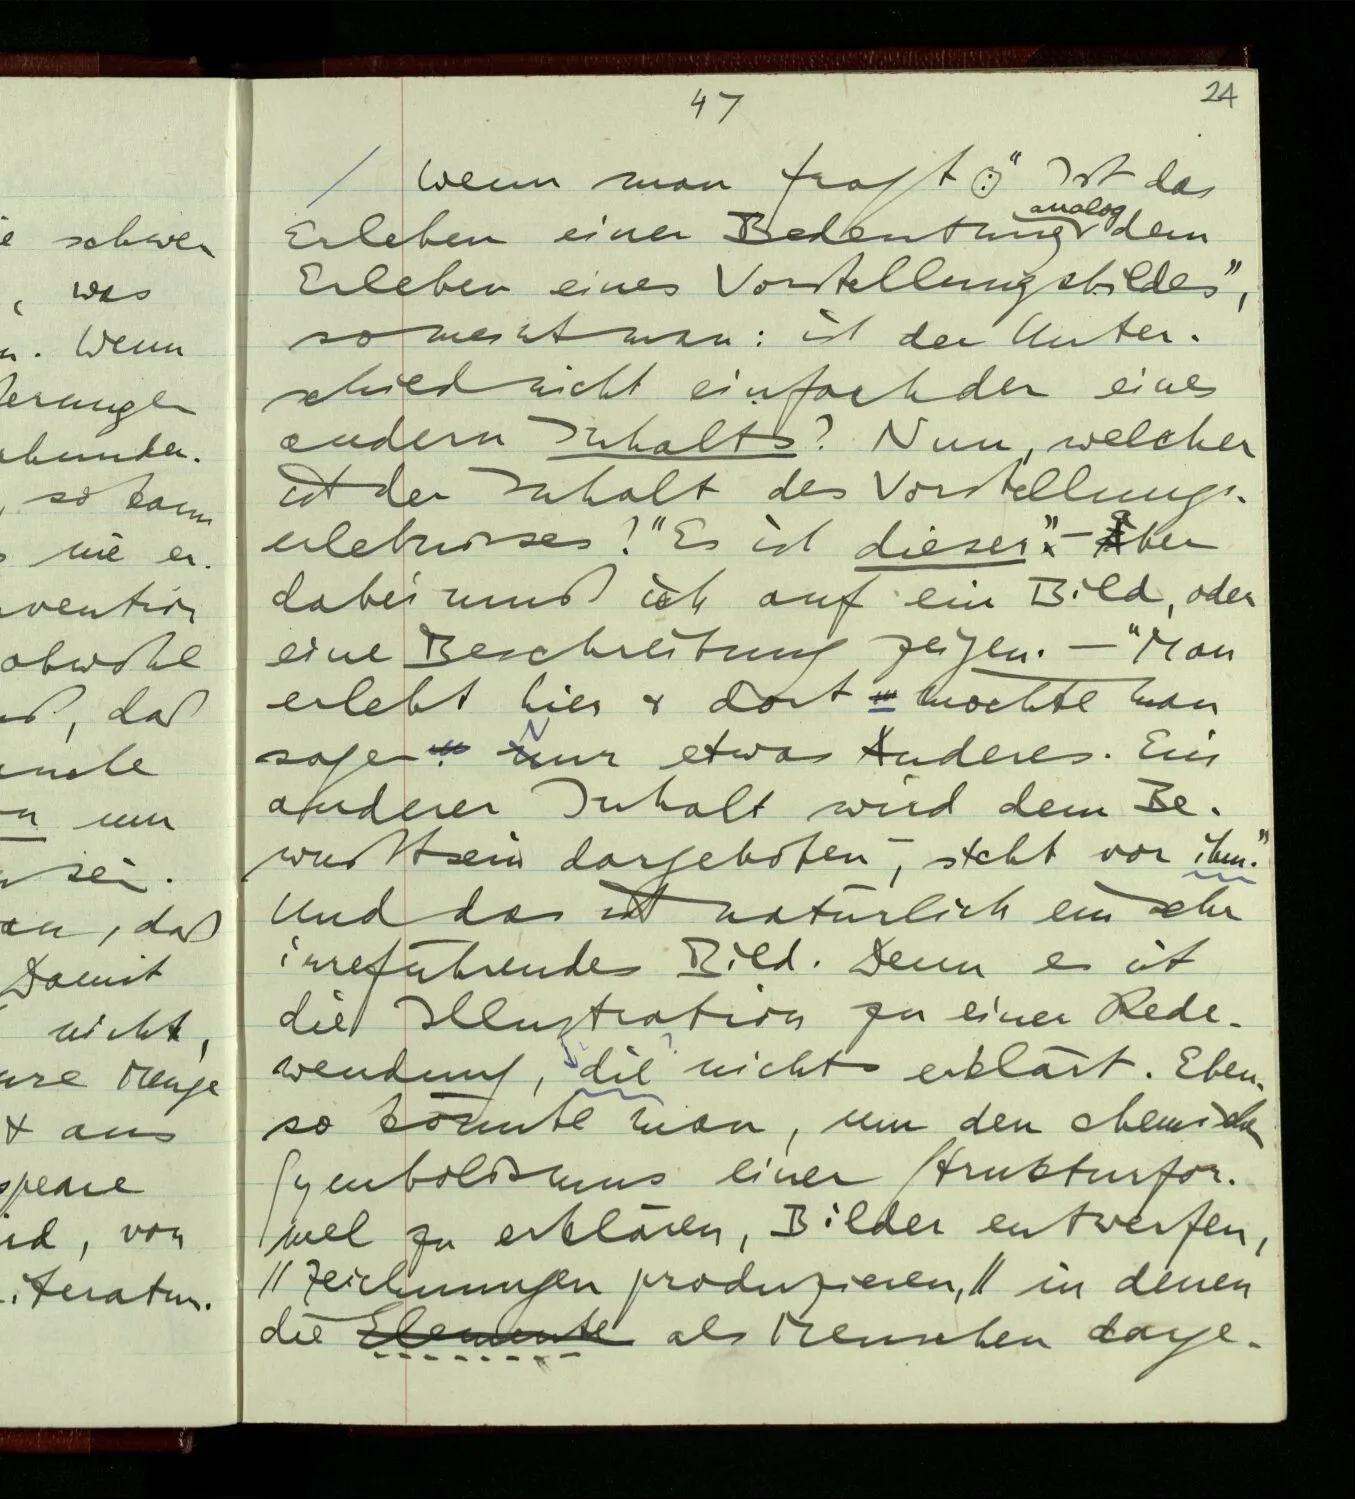 47
24
/ Wenn man fragt: "Ist das
Erleben einer Bedeutung analog dem
Erleben eines Vorstellungsbildes",
so meint man: ist der Unter-
schied nicht einfach der eines
andern Inhalts? Nun, welcher
ist der Inhalt des Vorstellungs-
erlebnisses? "Es ist dieser". – Aber
dabei muß ich auf ein Bild, oder
eine Beschreibung zeigen. – "Man
erlebt hier & dort möchte man
sagen nur etwas Anderes. Ein
anderer Inhalt wird dem Be-
wußtsein dargeboten –, steht vor ihm."
Und das ist natürlich ein sehr
irreführendes Bild. Denn es ist
die Illustration zu einer Rede-
wendung, die nichts erklärt. Eben-
so könnte man, um den chemischen
Symbolismus einer Strukturfor-
mel zu erklären, Bilder entwerfen,
//Zeichnungen produzieren,// in denen
die Elemente als Menschen darge-
schwer
, was
Wenn
so kann
nie er-
obwohl
, daß
um
sei.
, daß
Damit
nicht,
Menge
aus
, von